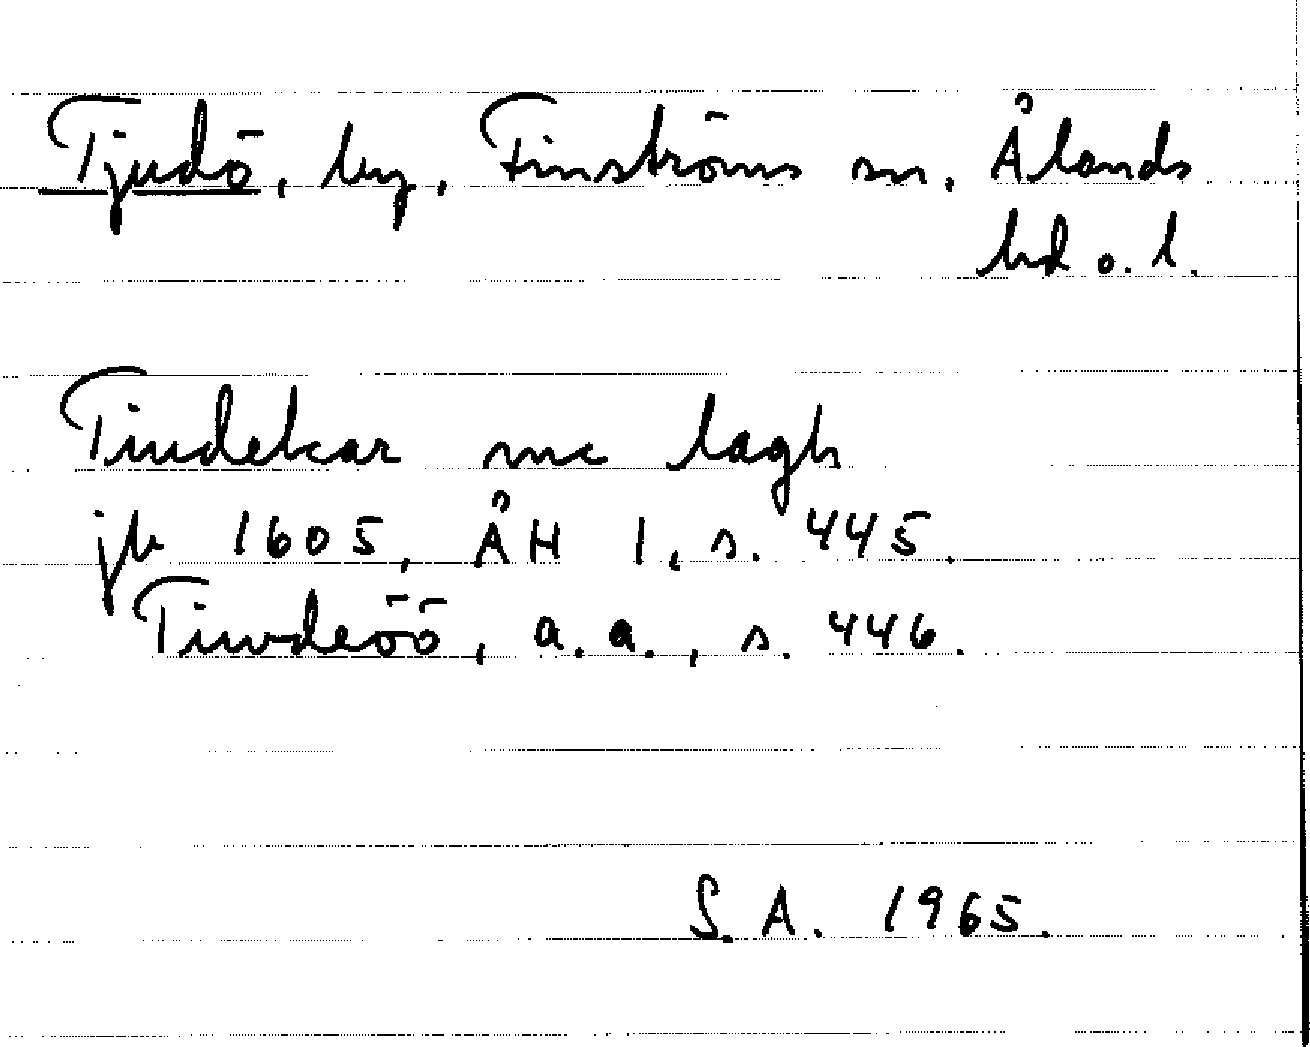 Tjudö, by, Finströms sn, Ålands
hd o. l.
Tiudekar me lagh
jb 1605, ÅH 1, s. 445.
Tiwdeöö, a. a., s. 446.
S. A. 1965.